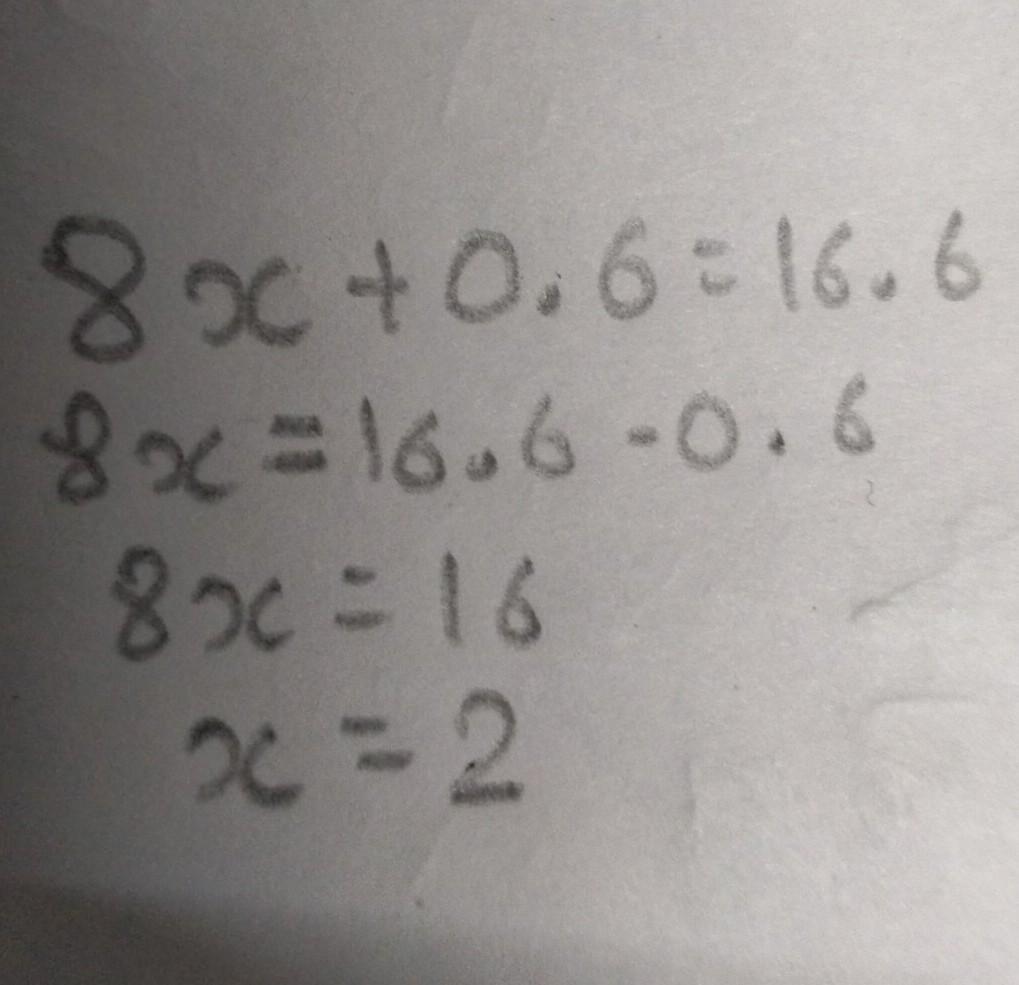 8x+0.6=16.6
8x=16.6-0.6
8x=16
x=2